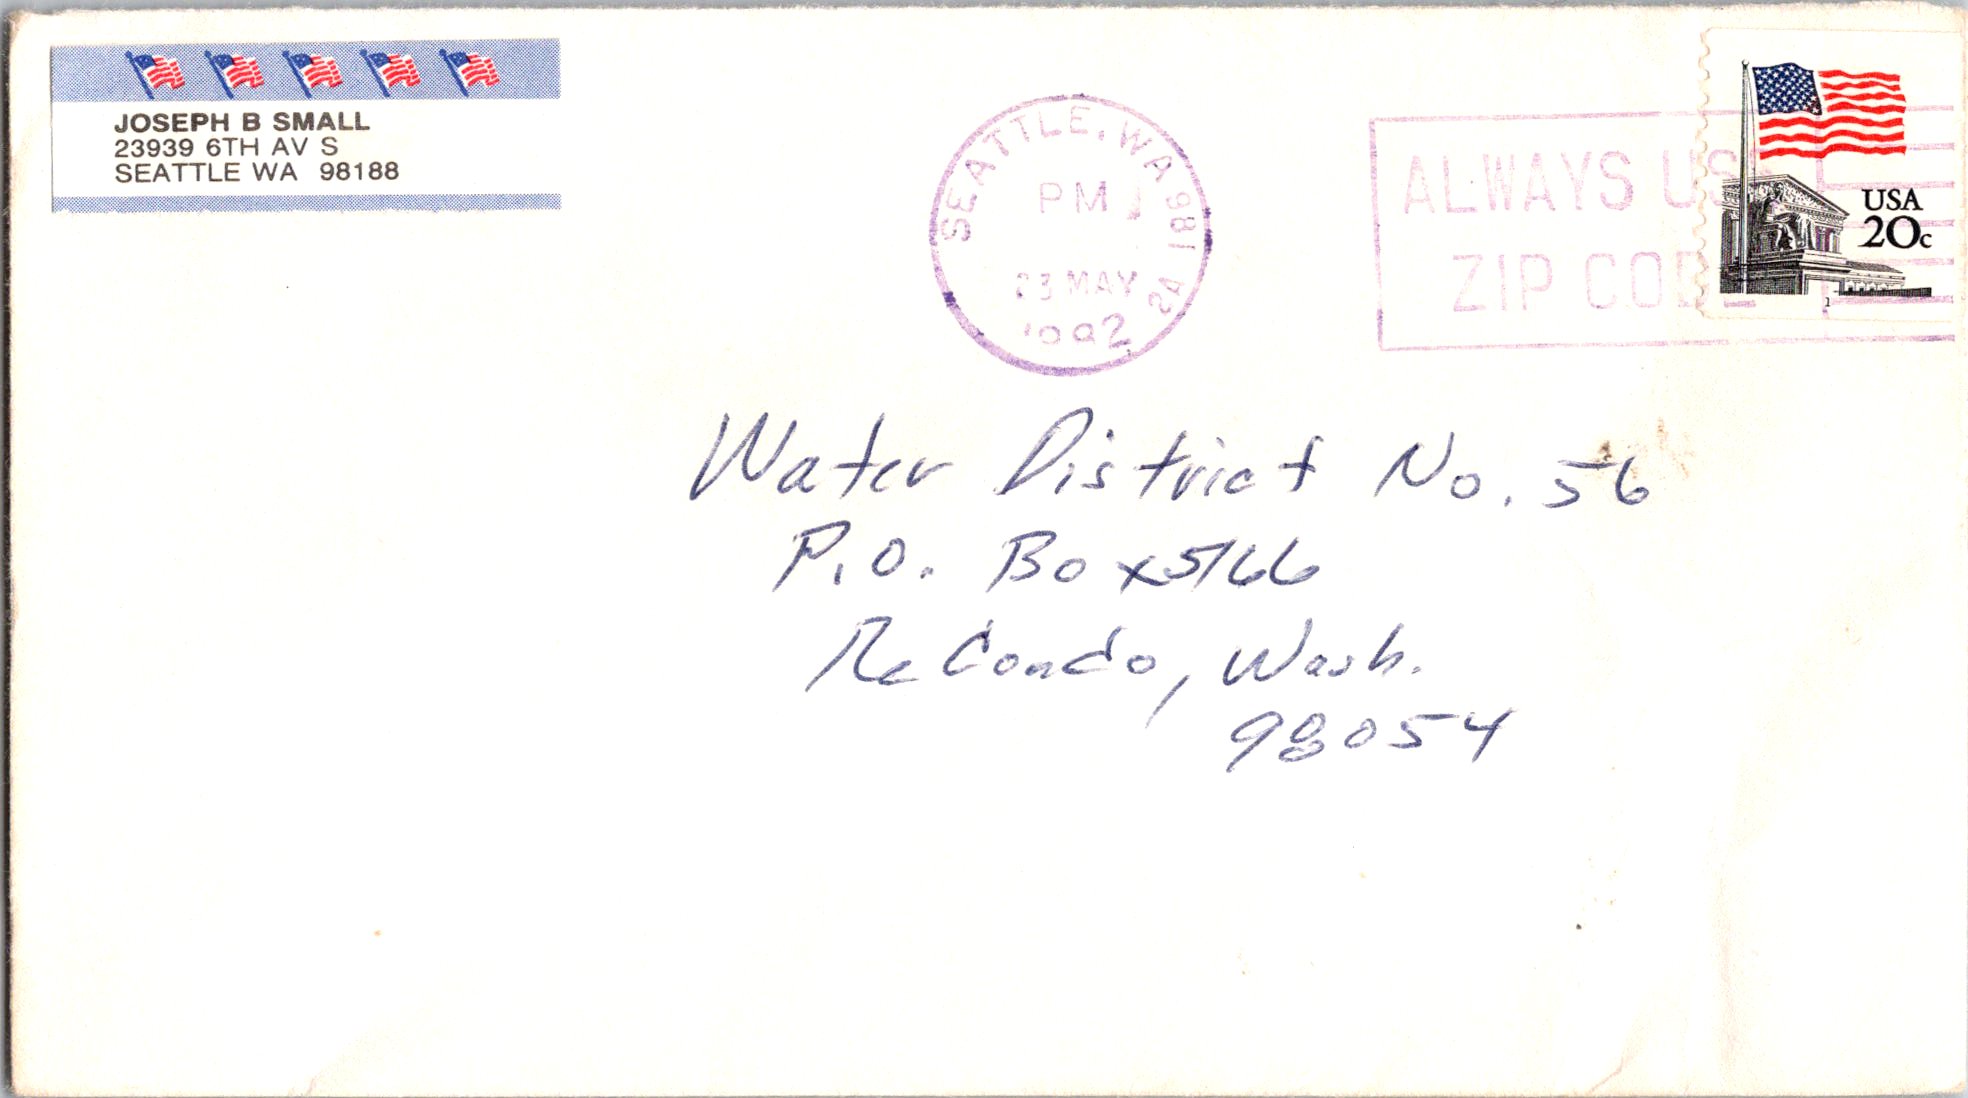 JOSEPH B SMALL
23939 6TH AV S
SEATTLE WA 98188
SEATTLE, WA 981
PM
23 MAY
ALWAYS USE
ZIP CODE
USA
20c
1
Water District No. 56
P.O. Box 5166
ReCondo, Wash.
98054